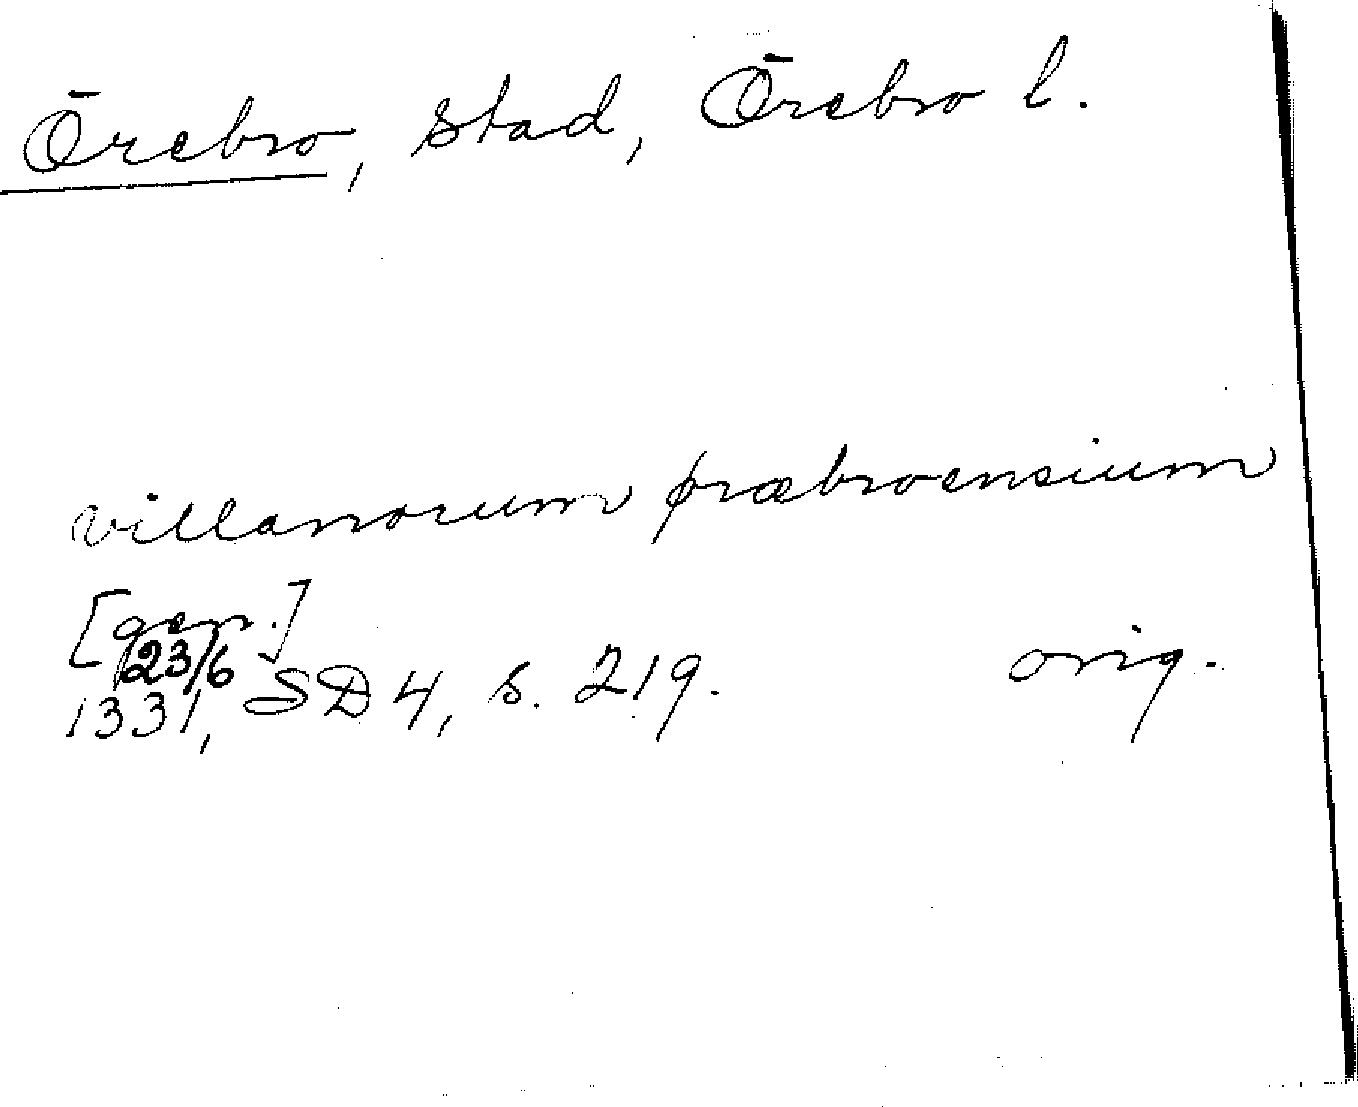 Örebro, stad, Örebro l.
villanorum øræbroensium
[gen.]
23/6
1331, SD 4, s. 219. orig.